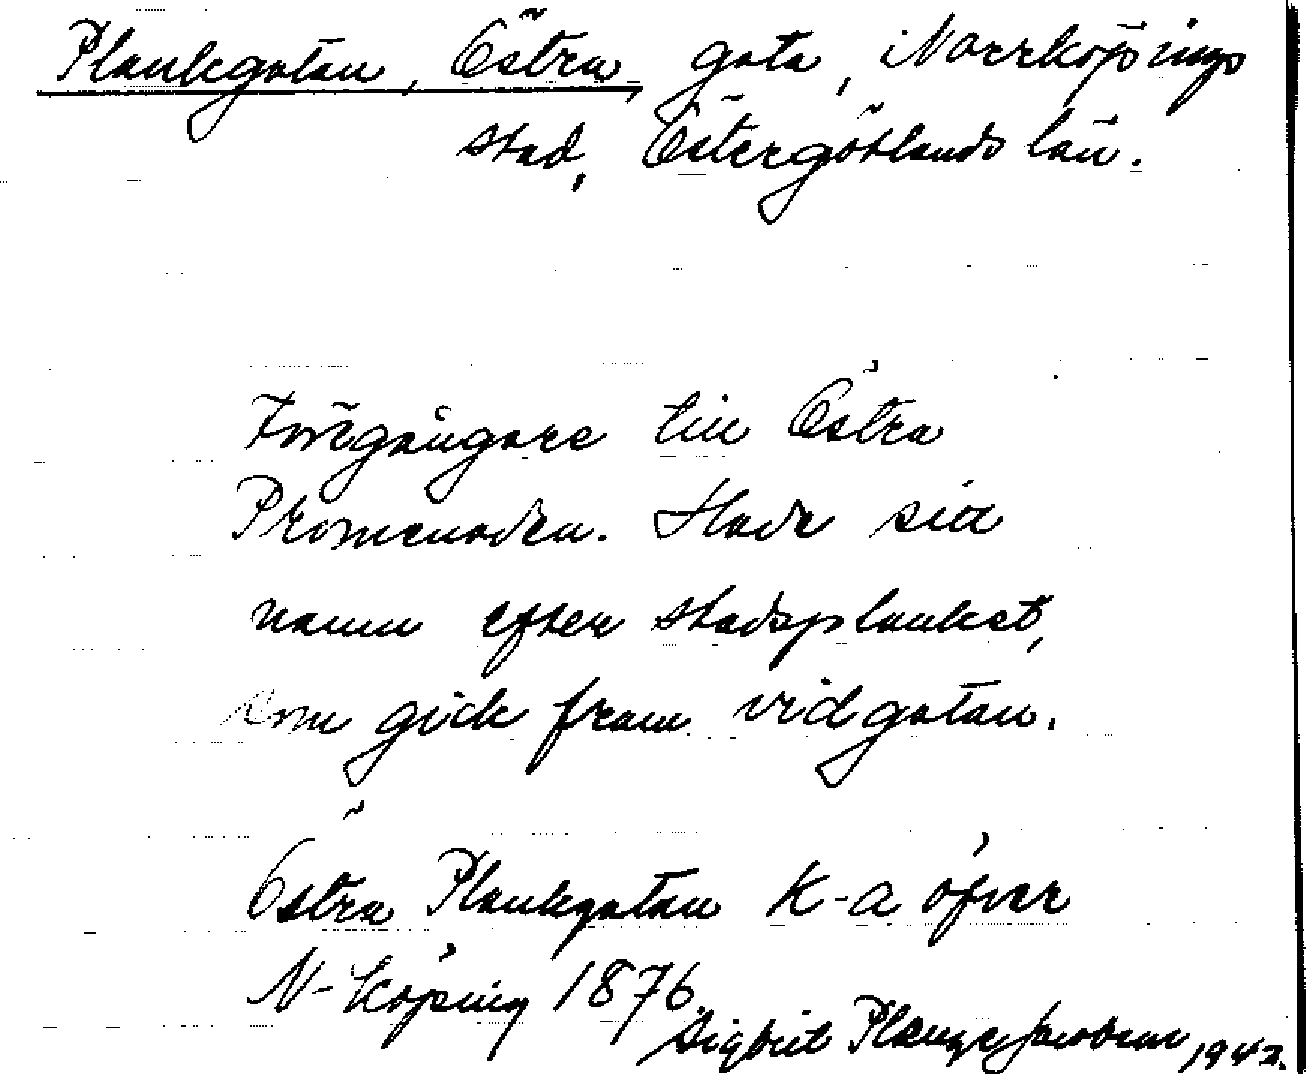 Plankgatan, Östra, gata, Norrköpings
stad, Östergötlands län.
Föregångare till Östra
Promenaden. Hade sitt
namn efter stadsplanket,
som gick fram vid gatan.
Östra Plankgatan K-a öfver
N-köping 1876
Sigbrit Plænge Jacobson 1942.